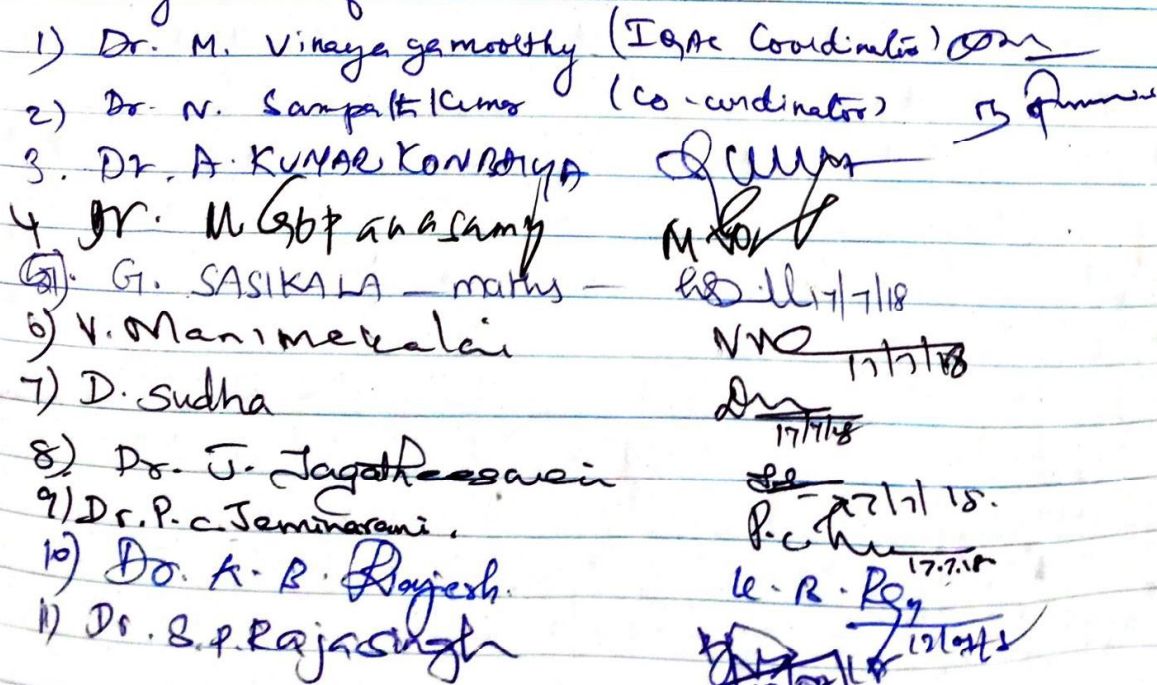 1) Dr. M. Vinayagamoorthy (IQAC Coordinator)
2) Dr. N. Sampath Kumar (Co-ordinator)
3. Dr. A. KUMAR KONDAIYA
4 Dr. M Gopanasamy
G. SASIKALA – maths – 17/7/18
6) V. Manimekalai 17/7/18
7) D. Sudha 17/7/18
8) Dr. J. Jagatheeswari 17/7/18.
9) Dr. P. C. Jeminarani. P.C. 17.7.18
10) Dr. K. B. Rajesh. K. B. Raj
11) Dr. S. P. Rajasingh